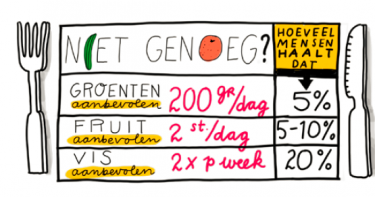 NIET GENOEG?
HOEVEEL
MENSEN
HAALT
DAT
GROENTEN
aanbevolen
200 gr/dag
5%
FRUIT
aanbevolen
2 st./dag
5-10%
VIS
aanbevolen
2 x p week
20%